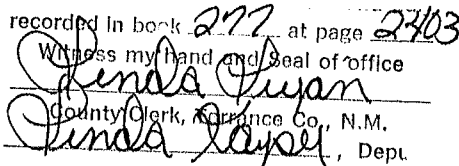 recorded in book 277 at page 2403
Witness my hand and Seal of office
Linda Lujan
County Clerk, Torrance Co., N.M.
Linda Kayser, Depu